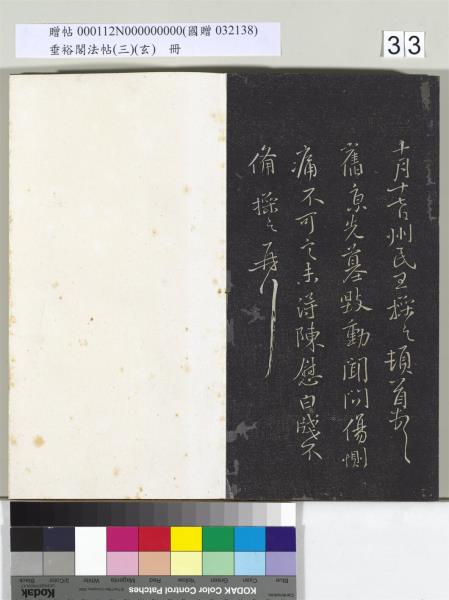 贈帖 000112N000000000(國贈 032138)
垂裕閣法帖(三)(玄) 冊
33
十月廿七日州民王操之頓首頓首
舊京先墓毀動聞問傷惻
痛不可言未得陳慰白牋不
備操之再
Blue
Cyan
Green
Yellow
Red
Magenta
White
3/Color
Black
KODAK Color Control Patches
Kodak